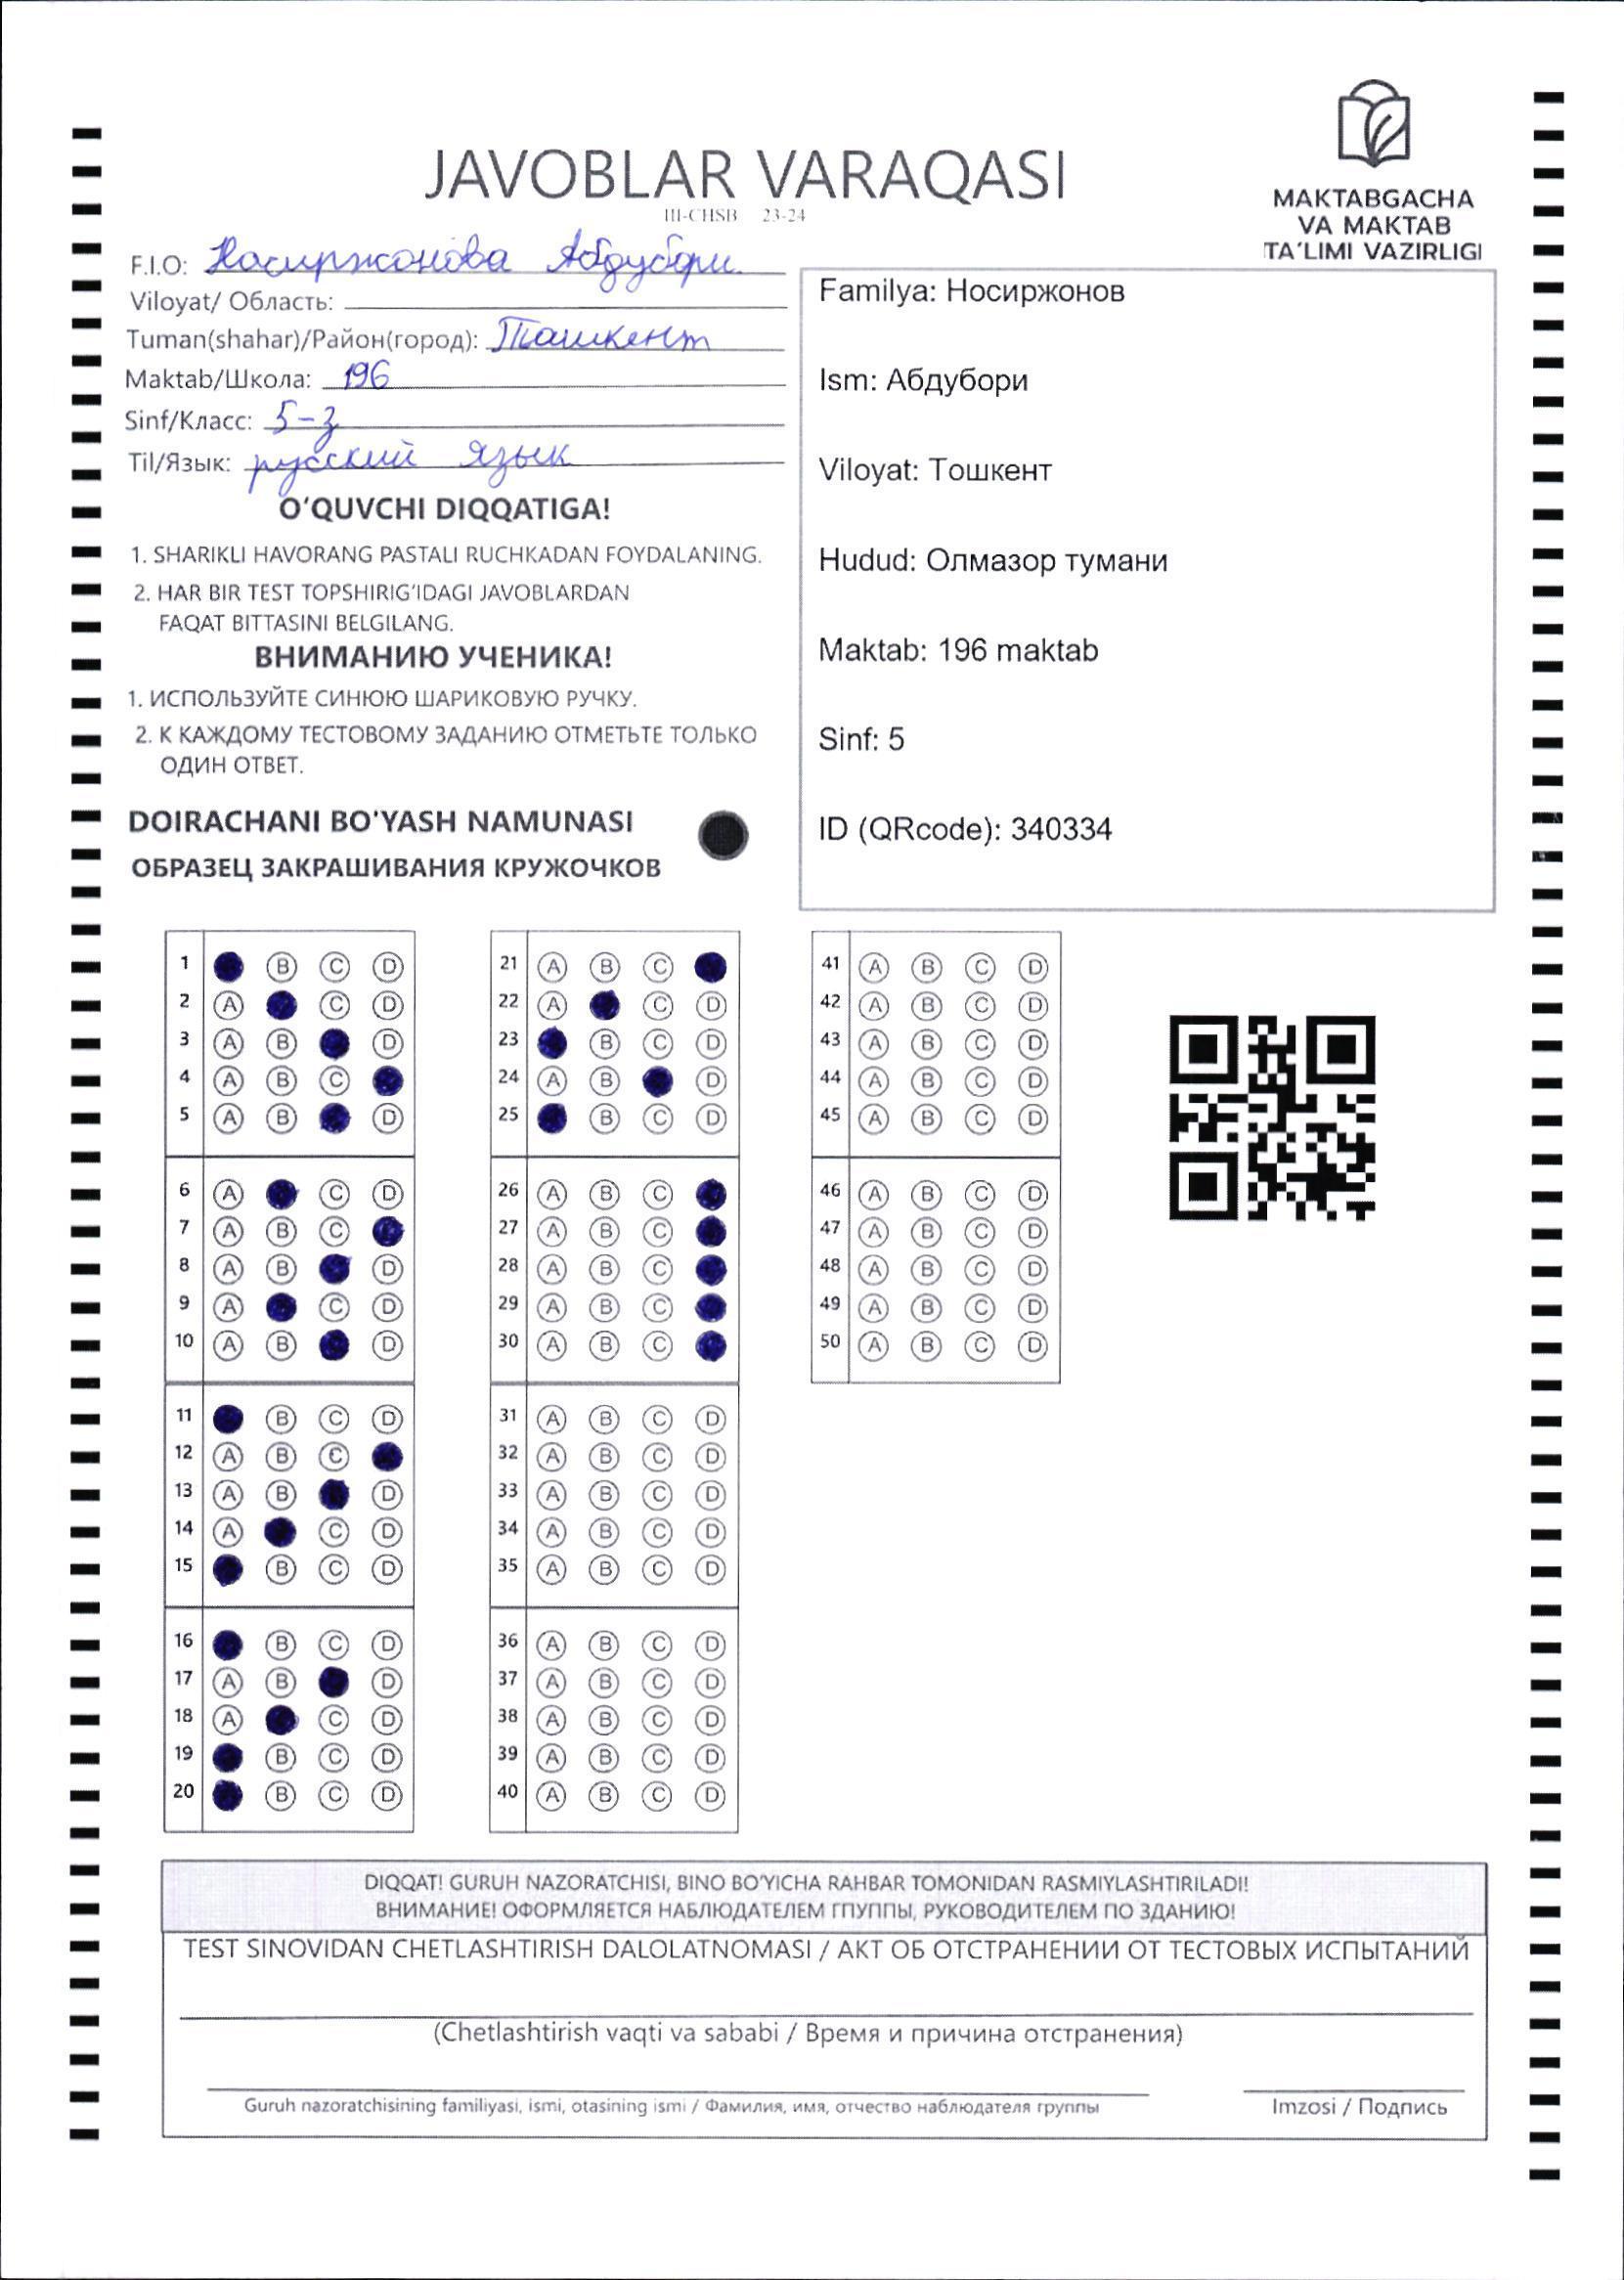 JAVOBLAR VARAQASI
III-CHSB 23-24
MAKTABGACHA
VA MAKTAB
TA'LIMI VAZIRLIGI
F.I.O: Насиржонова Абдубори
Viloyat/ Область:
Tuman(shahar)/Район(город): Ташкент
Maktab/Школа: 196
Sinf/Класс: 5-з
Til/Язык: русский язык
O'QUVCHI DIQQATIGA!
1. SHARIKLI HAVORANG PASTALI RUCHKADAN FOYDALANING.
2. HAR BIR TEST TOPSHIRIG'IDAGI JAVOBLARDAN
FAQAT BITTASINI BELGILANG.
ВНИМАНИЮ УЧЕНИКА!
1. ИСПОЛЬЗУЙТЕ СИНЮЮ ШАРИКОВУЮ РУЧКУ.
2. К КАЖДОМУ ТЕСТОВОМУ ЗАДАНИЮ ОТМЕТЬТЕ ТОЛЬКО
ОДИН ОТВЕТ.
DOIRACHANI BO'YASH NAMUNASI
ОБРАЗЕЦ ЗАКРАШИВАНИЯ КРУЖОЧКОВ
Familya: Носиржонов
Ism: Абдубори
Viloyat: Тошкент
Hudud: Олмазор тумани
Maktab: 196 maktab
Sinf: 5
ID (QRcode): 340334
1 B C D
2 A C D
3 A B D
4 A B C
5 A B D
6 A C D
7 A B C
8 A B D
9 A C D
10 A B D
11 B C D
12 A B C
13 A B D
14 A C D
15 B C D
16 B C D
17 A B D
18 A C D
19 B C D
20 B C D
21 A B C
22 A C D
23 B C D
24 A B D
25 B C D
26 A B C
27 A B C
28 A B C
29 A B C
30 A B C
31 A B C D
32 A B C D
33 A B C D
34 A B C D
35 A B C D
36 A B C D
37 A B C D
38 A B C D
39 A B C D
40 A B C D
41 A B C D
42 A B C D
43 A B C D
44 A B C D
45 A B C D
46 A B C D
47 A B C D
48 A B C D
49 A B C D
50 A B C D
DIQQAT! GURUH NAZORATCHISI, BINO BO'YICHA RAHBAR TOMONIDAN RASMIYLASHTIRILADI!
ВНИМАНИЕ! ОФОРМЛЯЕТСЯ НАБЛЮДАТЕЛЕМ ГПУППЫ, РУКОВОДИТЕЛЕМ ПО ЗДАНИЮ!
TEST SINOVIDAN CHETLASHTIRISH DALOLATNOMASI / АКТ ОБ ОТСТРАНЕНИИ ОТ ТЕСТОВЫХ ИСПЫТАНИЙ
(Chetlashtirish vaqti va sababi / Время и причина отстранения)
Guruh nazoratchisining familiyasi, ismi, otasining ismi / Фамилия, имя, отчество наблюдателя группы
Imzosi / Подпись